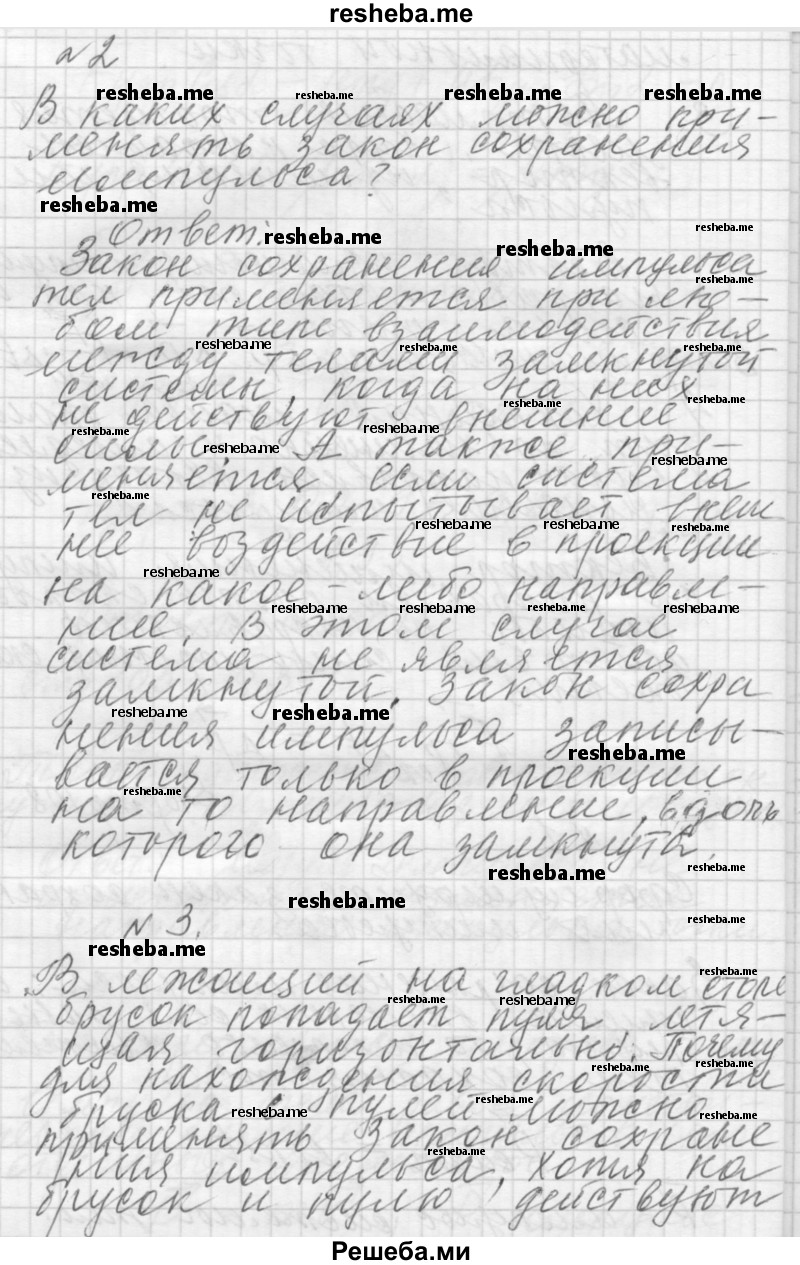 resheba.me
№2
В каких случаях можно при-
менять закон сохранения
импульса?
Ответ:
Закон сохранения импульса
тел применяется при лю-
бом типе взаимодействия
между телами замкнутой
системы, когда на них
не действуют внешние
силы. А также при-
меняется если система
тел не испытывает внеш
нее воздействие в проекции
на какое-либо направле-
ние. В этом случае
система не является
замкнутой. Закон сохра
нения импульса записы-
вается только в проекции
на то направление, вдоль
которого она замкнута.
№3.
В лежащий на гладком столе
брусок попадает пуля летя-
щая горизонтально. Почему
для нахождения скорости
бруска с пулей можно
применять закон сохране
ния импульса, хотя на
брусок и пулю действуют
Решеба.ми